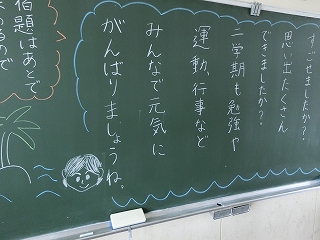 すごせましたか?
思い出たくさん
できましたか?
二学期も勉強や
運動、行事など
みんなで元気に
がんばりましょうね。
宿題はあとで